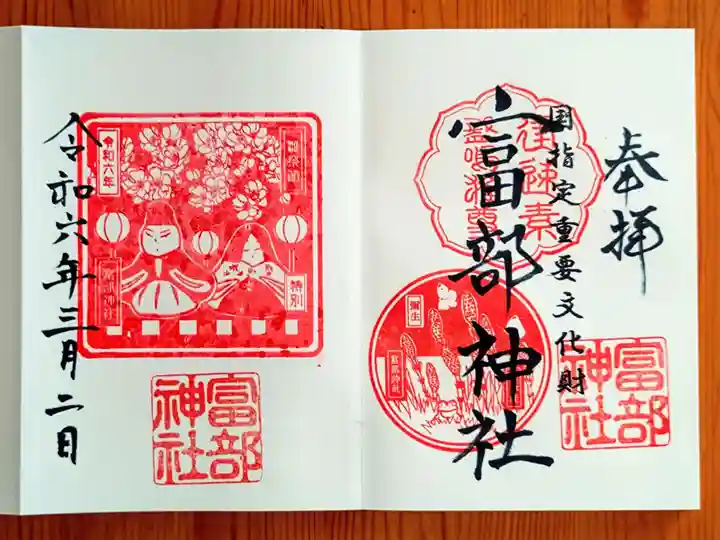 奉拝
国指定重要文化財
富部神社
富部神社
彌生
令和六年三月二日
令和六年
特別
富部神社